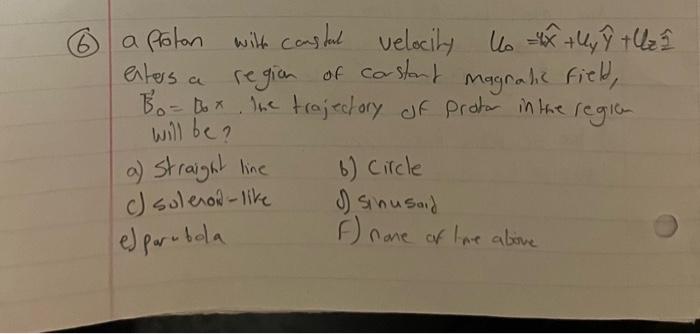 6 a proton with constal velocity U₀ = Ux̂ + Uyŷ + Uzẑ
enters a region of constant magnatic field,
B⃗₀ = B₀x. The trajectory of proton in the region
will be?
a) straight line b) circle
c) solenoid-like d) sinusoid
e) parabola F) none of the above